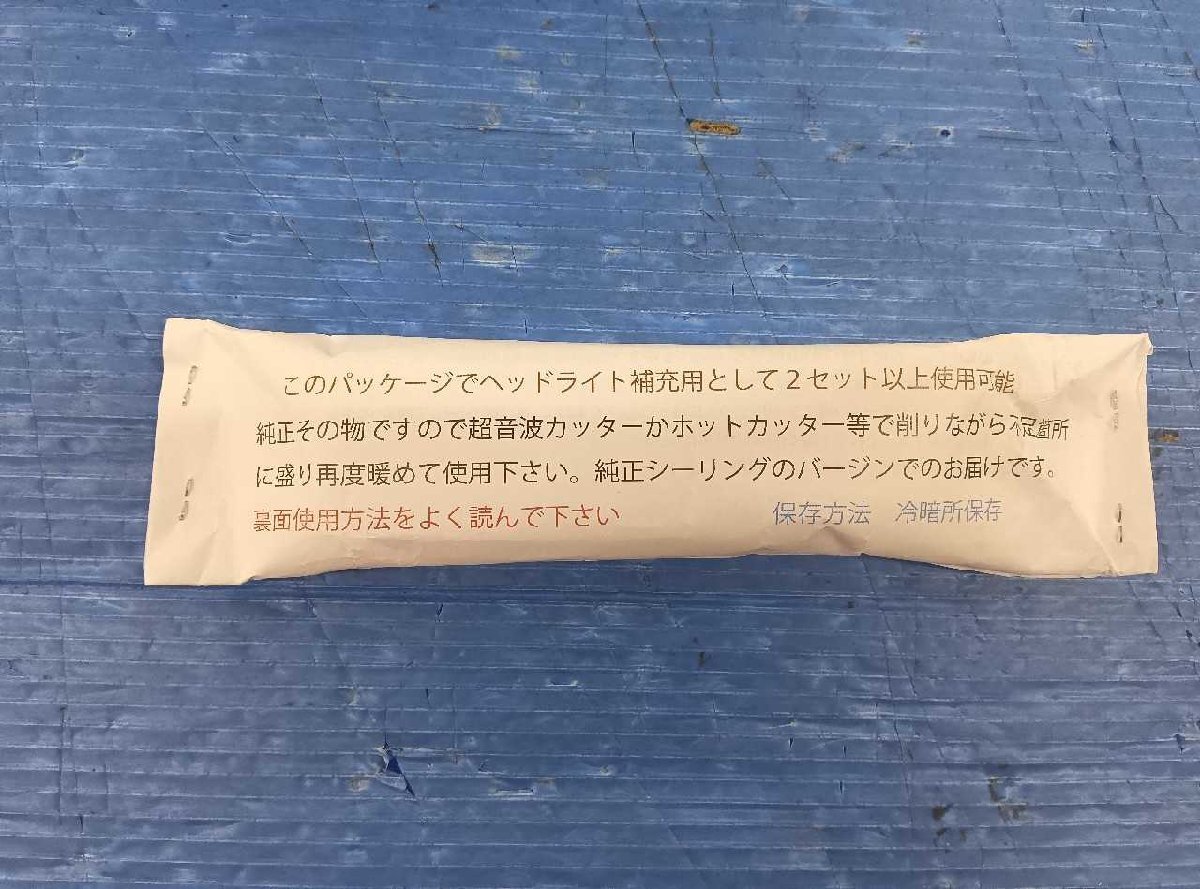 このパッケージでヘッドライト補充用として２セット以上使用可能
純正その物ですので超音波カッターかホットカッター等で削りながら不足箇所
に盛り再度暖めて使用下さい。純正シーリングのバージンでのお届けです。
裏面使用方法をよく読んで下さい　保存方法　冷暗所保存